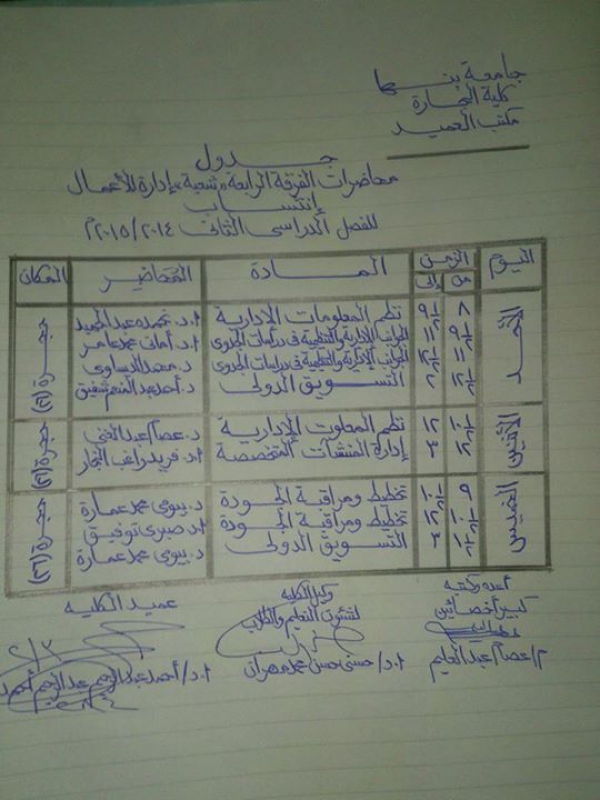 جامعة بنها
كلية التجارة
مكتب العميد
جدول
محاضرات الفرقة الرابعة "شعبة" إدارة الأعمال
إنتساب
للفصل الدراسى الثانى ٢٠١٤/٢٠١٥م
اليوم الزمن المادة المحاضر المكان
من إلى
الأحد ٨ ٩½ نظم المعلومات الإدارية ا.د. نجمده عبدالحميد حجرة (٢٦)
٩½ ١١ الجوانب الإدارية والتنظيمية فى دراسات الجدوى ا.د. أمانى محمد عامر
١١ ١٢½ الجوانب الإدارية والتنظيمية فى دراسات الجدوى د. محمد الدساوى
١٢½ ٢ التسويق الدولى د. أحمد عبدالمنعم شفيق
الأثنين ١٠½ ١٢ نظم المعلومات الإدارية د. عصام عبدالغنى حجرة (٢٦)
١٢ ٣ إدارة المنشآت المتخصصة ا.د. فريد راغب النجار
الخميس ٩ ١٠½ تخطيط ومراقبة الجودة د. بيومى محمد عمارة حجرة (٢٦)
١٠½ ١٢ تخطيط ومراقبة الجودة ا.د. صبرى توفيق
١½ ٣ التسويق الدولى د. بيومى محمد عمارة
أعده وكتبه
كبير أخصائين
م/ عصام عبدالعليم
وكيل الكلية
لشئون التعليم والطلاب
ا.د/ حسنى حسن محمد مهران
عميد الكلية
ا.د/ أحمد عبدالرحيم عبدالرحيم أحمد